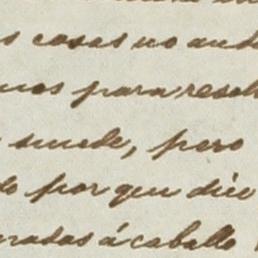 s casas no and
mos para resol
smede, pero
do por qeu dice
radas á caballo